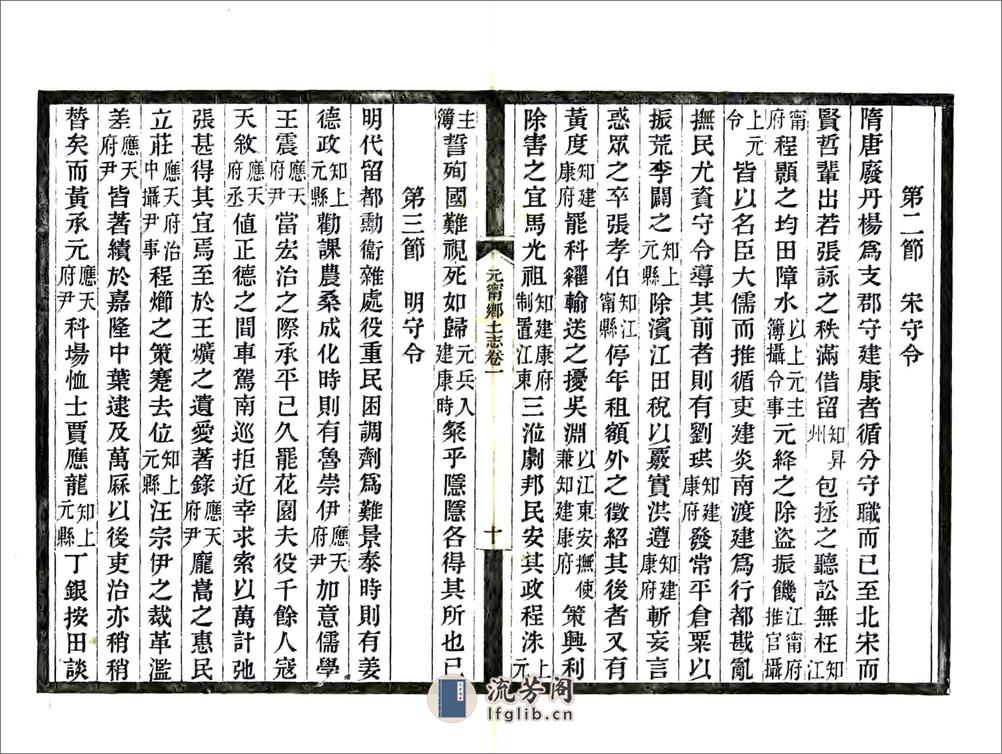 第二節　宋守令
隋唐廢丹楊爲支郡守建康者循分守職而已至北宋而
賢哲輩出若張詠之秩滿借留知昇州包拯之聽訟無枉知江
甯府程顥之均田障水以上元主簿攝令事元絳之除盜振饑江甯府推官攝
上元令皆以名臣大儒而推循吏建炎南渡建爲行都戡亂
撫民尤資守令導其前者則有劉珙知建康府發常平倉粟以
振荒李闢之知上元縣除濱江田稅以覈實洪遵知建康府斬妄言
惑眾之卒張孝伯知江甯縣停年租額外之徵紹其後者又有
黃度知建康府罷科糴輸送之擾吳淵以江東安撫使兼知建康府策興利
除害之宜馬光祖知建康府制置江東三涖劇邦民安其政程洙上元
元甯鄉土志卷一
十
主簿誓殉國難視死如歸元兵入建康時粲乎隱隱各得其所也已
第三節　明守令
明代留都勳衞雜處役重民困調劑爲難景泰時則有姜
德政知上元縣勸課農桑成化時則有魯崇伊應天府尹加意儒學
王震應天府尹當宏治之際承平已久罷花園夫役千餘人寇
天敘應天府丞値正德之間車駕南巡拒近幸求索以萬計弛
張甚得其宜焉至於王爌之遺愛著錄應天府尹龐嵩之惠民
立莊應天府治中攝尹事程㸅之策蹇去位知上元縣汪宗伊之裁革濫
差應天府尹皆著績於嘉隆中葉逮及萬厤以後吏治亦稍稍
替矣而黃承元應天府尹科場恤士賈應龍知上元縣丁銀按田談
流芳閣
lfglib.cn